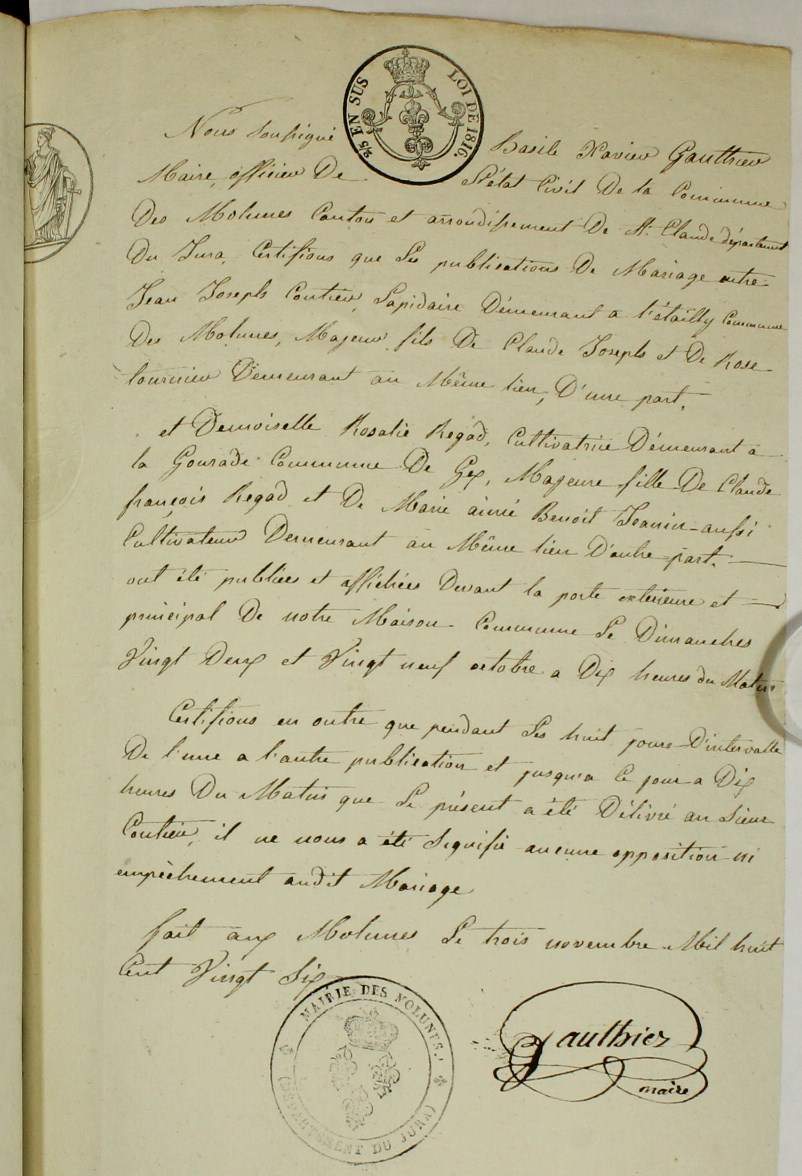 2/5 EN SUS LOI DE 1816.
Nous soussigné Basile Xavier Gauthier
Maire, officier De l'état Civil De la Commune
Des Molunes Canton et arrondissement De St. Claude département
Du Jura, Certifions que les publications De Mariage entre
Jean Joseph Coutier, Lapidaire Demeurant a l'étailly Commune
Des Molunes, Majeur fils De Claude Joseph et De Rose
tournier Demeurant au Même lieu, D'une part,
et Demoiselle Rosalie Regad, Cultivatrice Démeurant a
la Commune De Gex, Majeure fille De Claude
françois Regad et De Marie aimé Benoit Jeanin aussi
Cultivateur Demeurant au Même lieu D'autre part.
ont été publiées et affichées Devant la porte exterieure et
principal De notre Maison Commune Le Dimanches
Vingt Deux et Vingt neuf octobre a Dix heures du Matin
Certifions en outre que pendant Les huit jours D'intervalle
De l'une a l'autre publication et jusqu'a Ce jour a Dix
heures Du Matin que Le présent a été Délivré au Sieur
Coutier, il ne nous a été Signifié aucune opposition ni
empèchement audit Mariage
fait aux Molunes Le trois novembre Mil huit
Cent Vingt Six
MAIRIE DES MOLUNES.
(DEPARTEMENT DU JURA)
Gauthier
maire